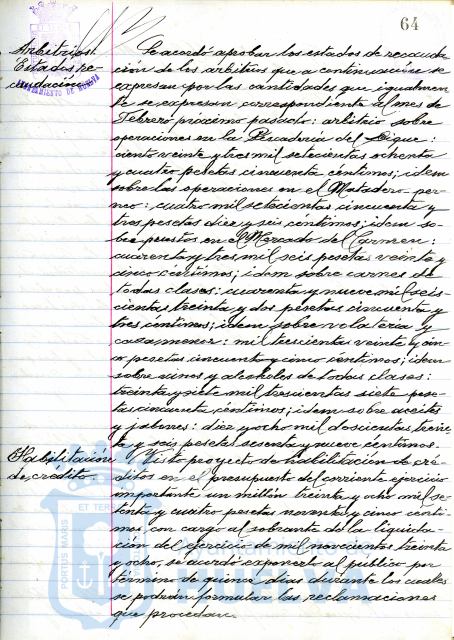 64
Arbitrios.
Estados re-
caudación.
AYUNTAMIENTO DE HUELVA
Se acordó aprobar los estados de recauda-
ción de los arbitrios que a continuación se
expresan por las cantidades que igualmen-
te se expresan correspondiente al mes de
Febrero próximo pasado: arbitrio sobre
operaciones en la Pescadería del Dique:
ciento veinte y tres mil setecientas ochenta
y cuatro pesetas cincuenta céntimos; idem
sobre las operaciones en el Matadero por-
no: cuatro mil setecientas cincuenta y
tres pesetas diez y seis céntimos; idem so-
bre puestos en el Mercado del Carmen:
cuarenta y tres mil seis pesetas veinte y
cinco céntimos; idem sobre carnes de
todas clases: cuarenta y nueve mil seis-
cientas treinta y dos pesetas cincuenta y
tres céntimos; idem sobre volatería y
caza menor: mil trescientas veinte y cin-
co pesetas cincuenta y cinco céntimos; idem
sobre vinos y alcoholes de todas clases:
treinta y siete mil trescientas siete pese-
tas cincuenta céntimos; idem sobre aceites
y jabones: diez y ocho mil doscientas trein-
ta y seis pesetas sesenta y nueve céntimos.
Habilitación
de crédito.
Visto proyecto de habilitación de cré-
ditos en el presupuesto del corriente ejercicio
importante un millón treinta y ocho mil se-
tenta y cuatro pesetas noventa y cinco cénti-
mos con cargo al sobrante de la liquida-
ción del ejercicio de mil novecientos treinta
y ocho, se acordó exponerlo al público por
término de quince días durante los cuales
se podrán formular las reclamaciones
que procedan.
PORTUS MARIS ET TERRAE
Ayuntamiento de
HUELVA